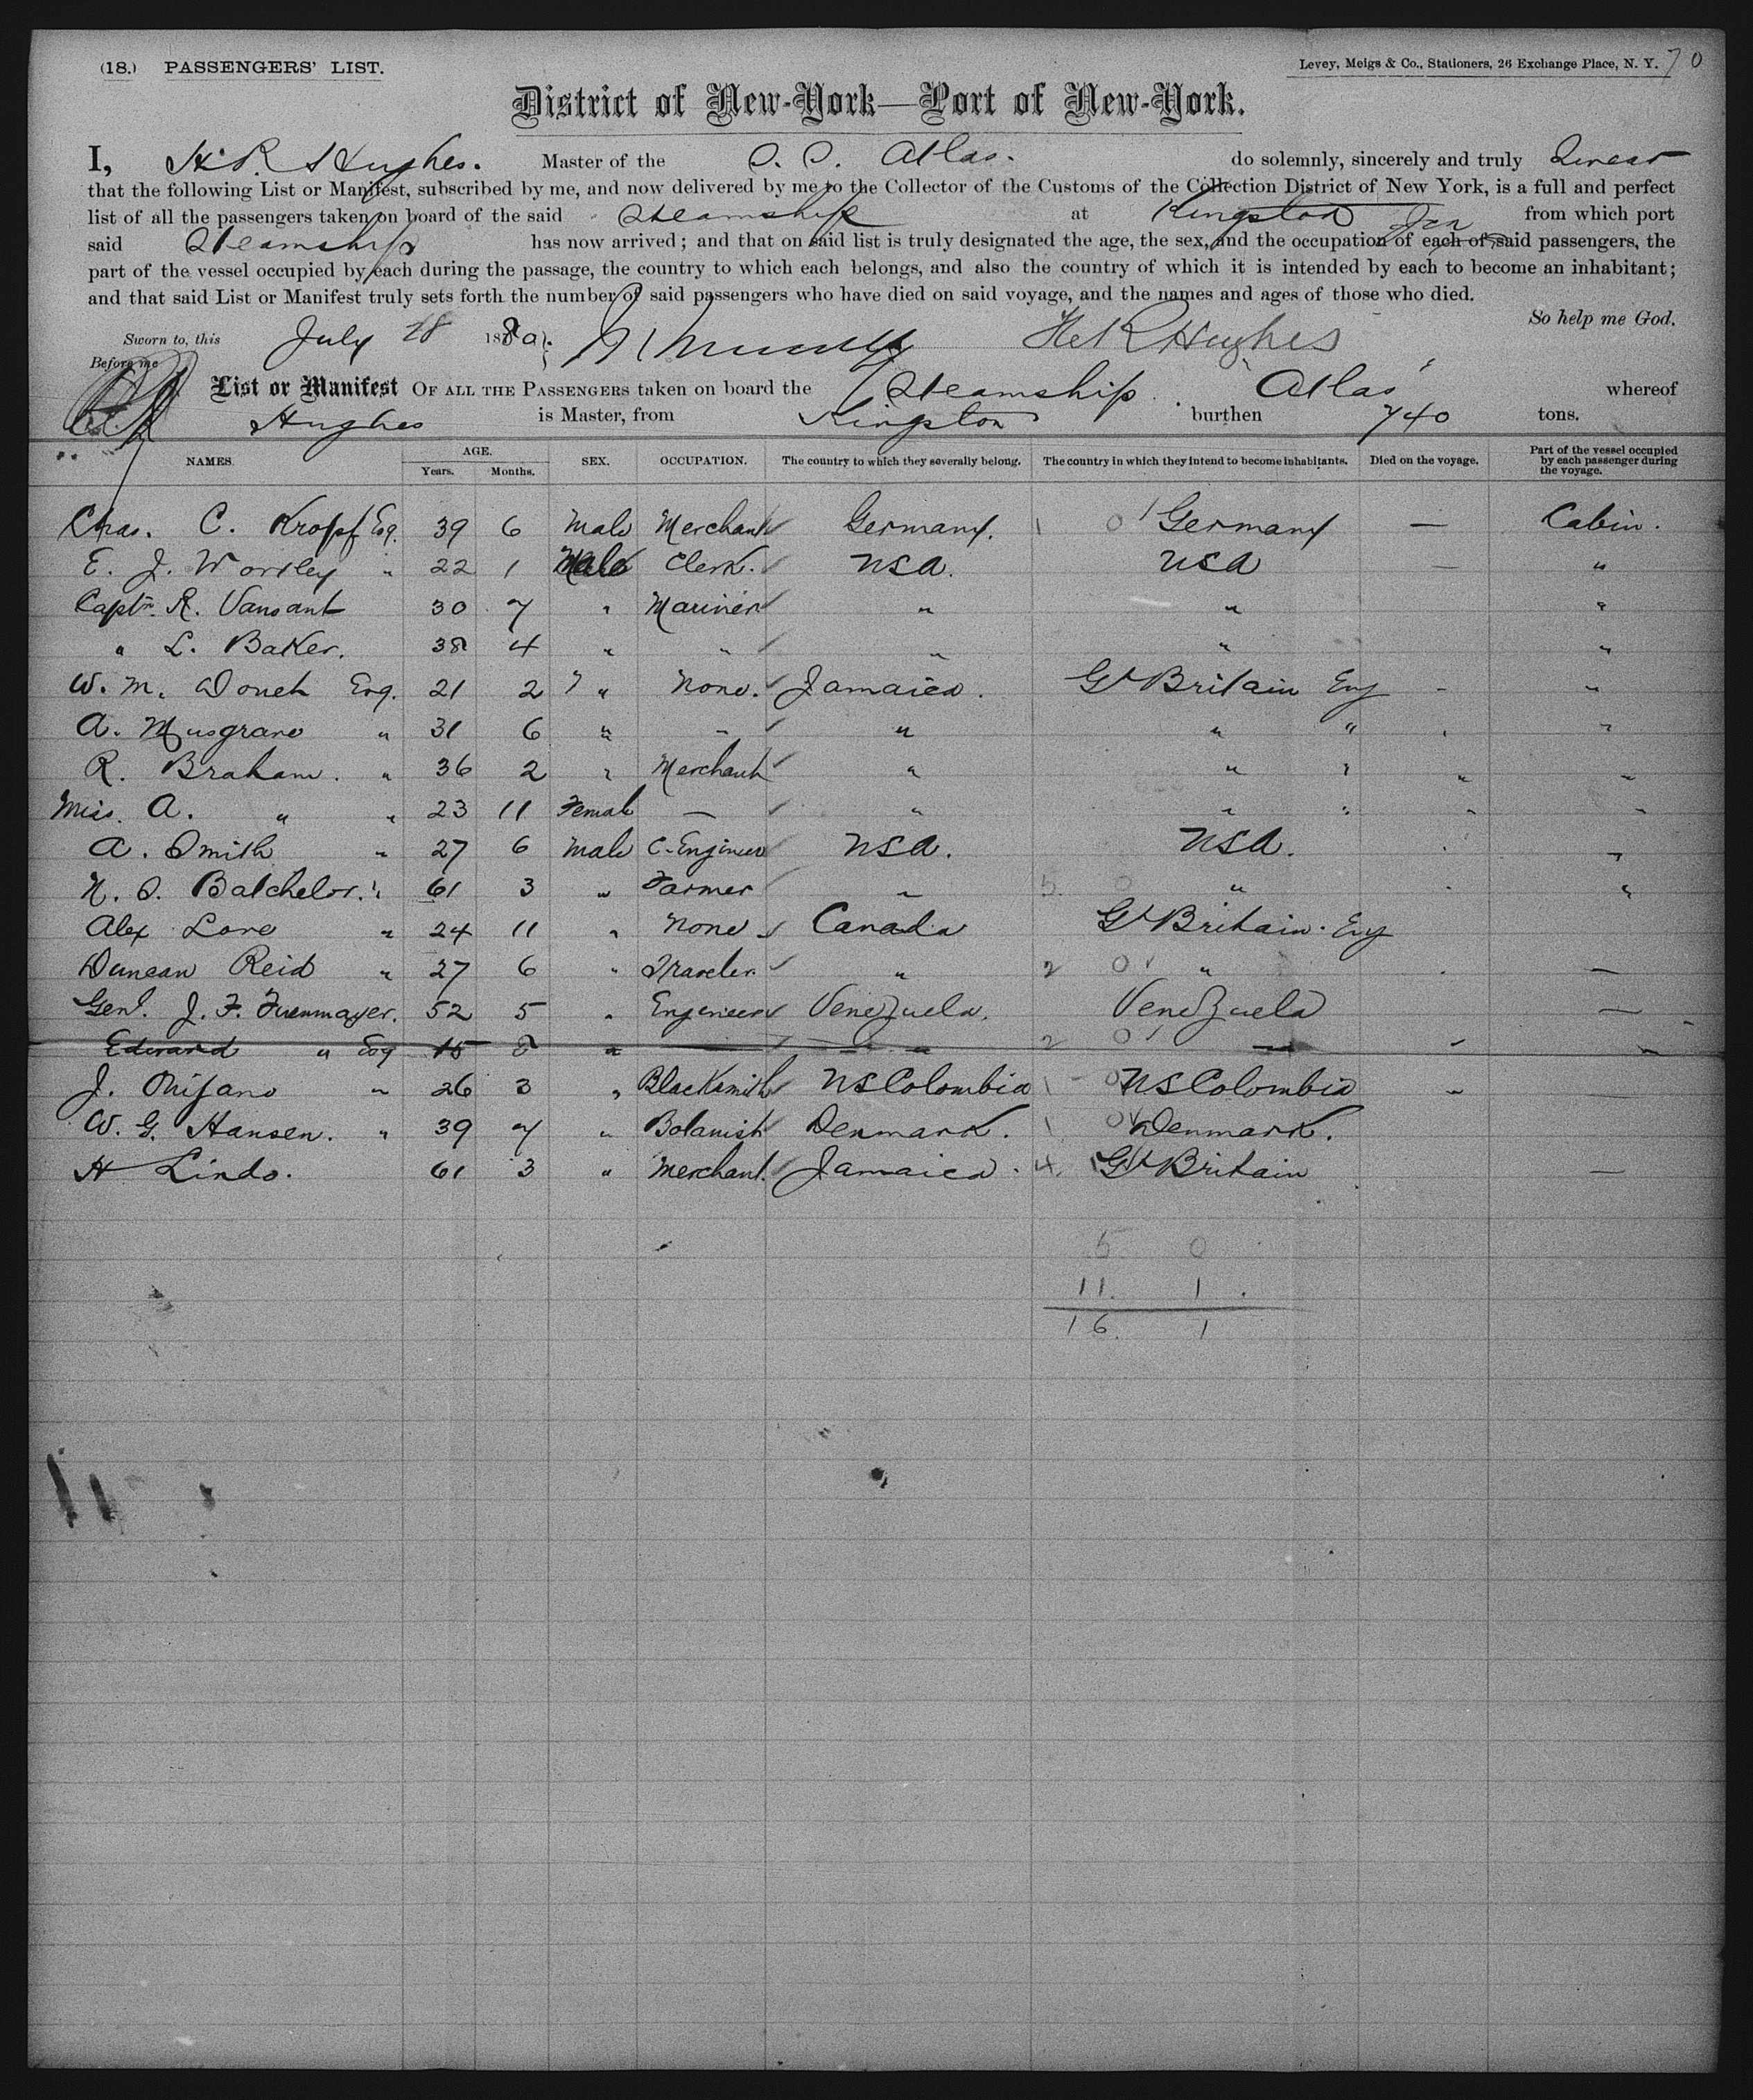 (18.) PASSENGERS' LIST.
Levey, Meigs & Co., Stationers, 26 Exchange Place, N. Y. 70
District of New-York—Port of New-York.
I, H. R. Hughes. Master of the S. S. Atlas. do solemnly, sincerely and truly Swear
that the following List or Manifest, subscribed by me, and now delivered by me to the Collector of the Customs of the Collection District of New York, is a full and perfect
list of all the passengers taken on board of the said Steamship at Kingston Jca from which port
said Steamship has now arrived; and that on said list is truly designated the age, the sex, and the occupation of each of said passengers, the
part of the vessel occupied by each during the passage, the country to which each belongs, and also the country of which it is intended by each to become an inhabitant;
and that said List or Manifest truly sets forth the number of said passengers who have died on said voyage, and the names and ages of those who died.
So help me God.
Sworn to, this July 18 1880. HRHughes
Before me
List or Manifest OF ALL THE PASSENGERS taken on board the Steamship Atlas whereof
Hughes is Master, from Kingston burthen 740 tons.
NAMES. AGE. Years. Months. SEX. OCCUPATION. The country to which they severally belong. The country in which they intend to become inhabitants. Died on the voyage. Part of the vessel occupied by each passenger during the voyage.
Chas. C. Kropf Esq. 39 6 Male Merchant Germany. 1 0 Germany — Cabin.
E. J. Wortley " 22 1 Male Clerk. USA. USA — "
Captn. R. Vansant 30 7 " Mariner " " "
" L. Baker. 38 4 " " " " "
W. M. Douet Esq. 21 2 " None. Jamaica. Gt Britain Eng - "
A. Musgrave " 31 6 " - " " " "
R. Braham. " 36 2 " Merchant " " " " "
Miss. A. " " 23 11 Female — " " " " "
A. Smith " 27 6 Male C. Engineer USA. USA. "
N. S. Batchelor. " 61 3 " Farmer " 5. 0 " "
Alex Love " 24 11 " None Canada Gt Britain. Eng
Duncan Reid " 27 6 " Traveler " 2 0 " —
Genl. J. F. Fuenmayer. 52 5 " Engineer Venezuela. Venezuela —
Edward " Esq 15 8 " — " 2 0 "
J. " 26 3 " Blacksmith USColombia 1 - 0 USColombia - —
W. G. Hansen. " 39 7 " Botanist Denmark. 1 0 Denmark.
H Lindo. 61 3 " Merchant. Jamaica. 4. 1 Gt Britain —
5 0
11. 1.
16. 1